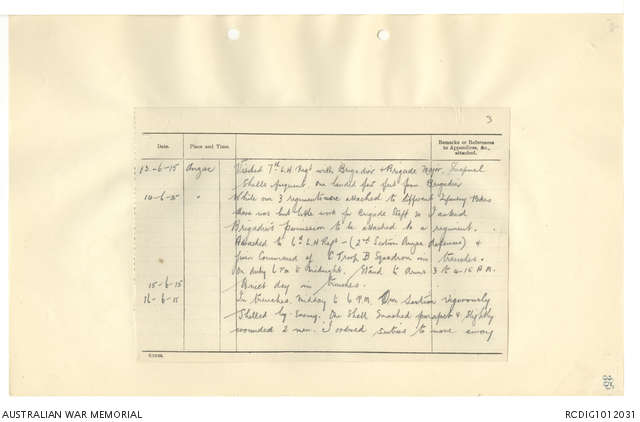 3
Date. Place and Time. Remarks or References to Appendices, &c., attached.
13-6-15 Anzac Visited 7th L.H. Regt with Brigadier & Brigade Major. Shrapnel
Shells frequent. One landed feet from Brigadier
14-6-15 " While our 3 regiments were attached to different Infantry Bdes
there was but little work for Brigade Staff so I asked
Brigadier's permission to be attached to a regiment.
Attached to 6th L.H. Regt - (2nd Section Anzac defences) &
given Command of Troop B Squadron in trenches.
On duty 6 P.M. to Midnight. Stand to Arms 3 to 4-15 A.M.
15-6-15 Quiet day in trenches.
16-6-15 In trenches. Midday to 6 P.M. Our Section vigorously
Shelled by Enemy. One Shell Smashed parapet & Slightly
wounded 2 men. I ordered sentries to move away
AUSTRALIAN WAR MEMORIAL
RCDIG1012031